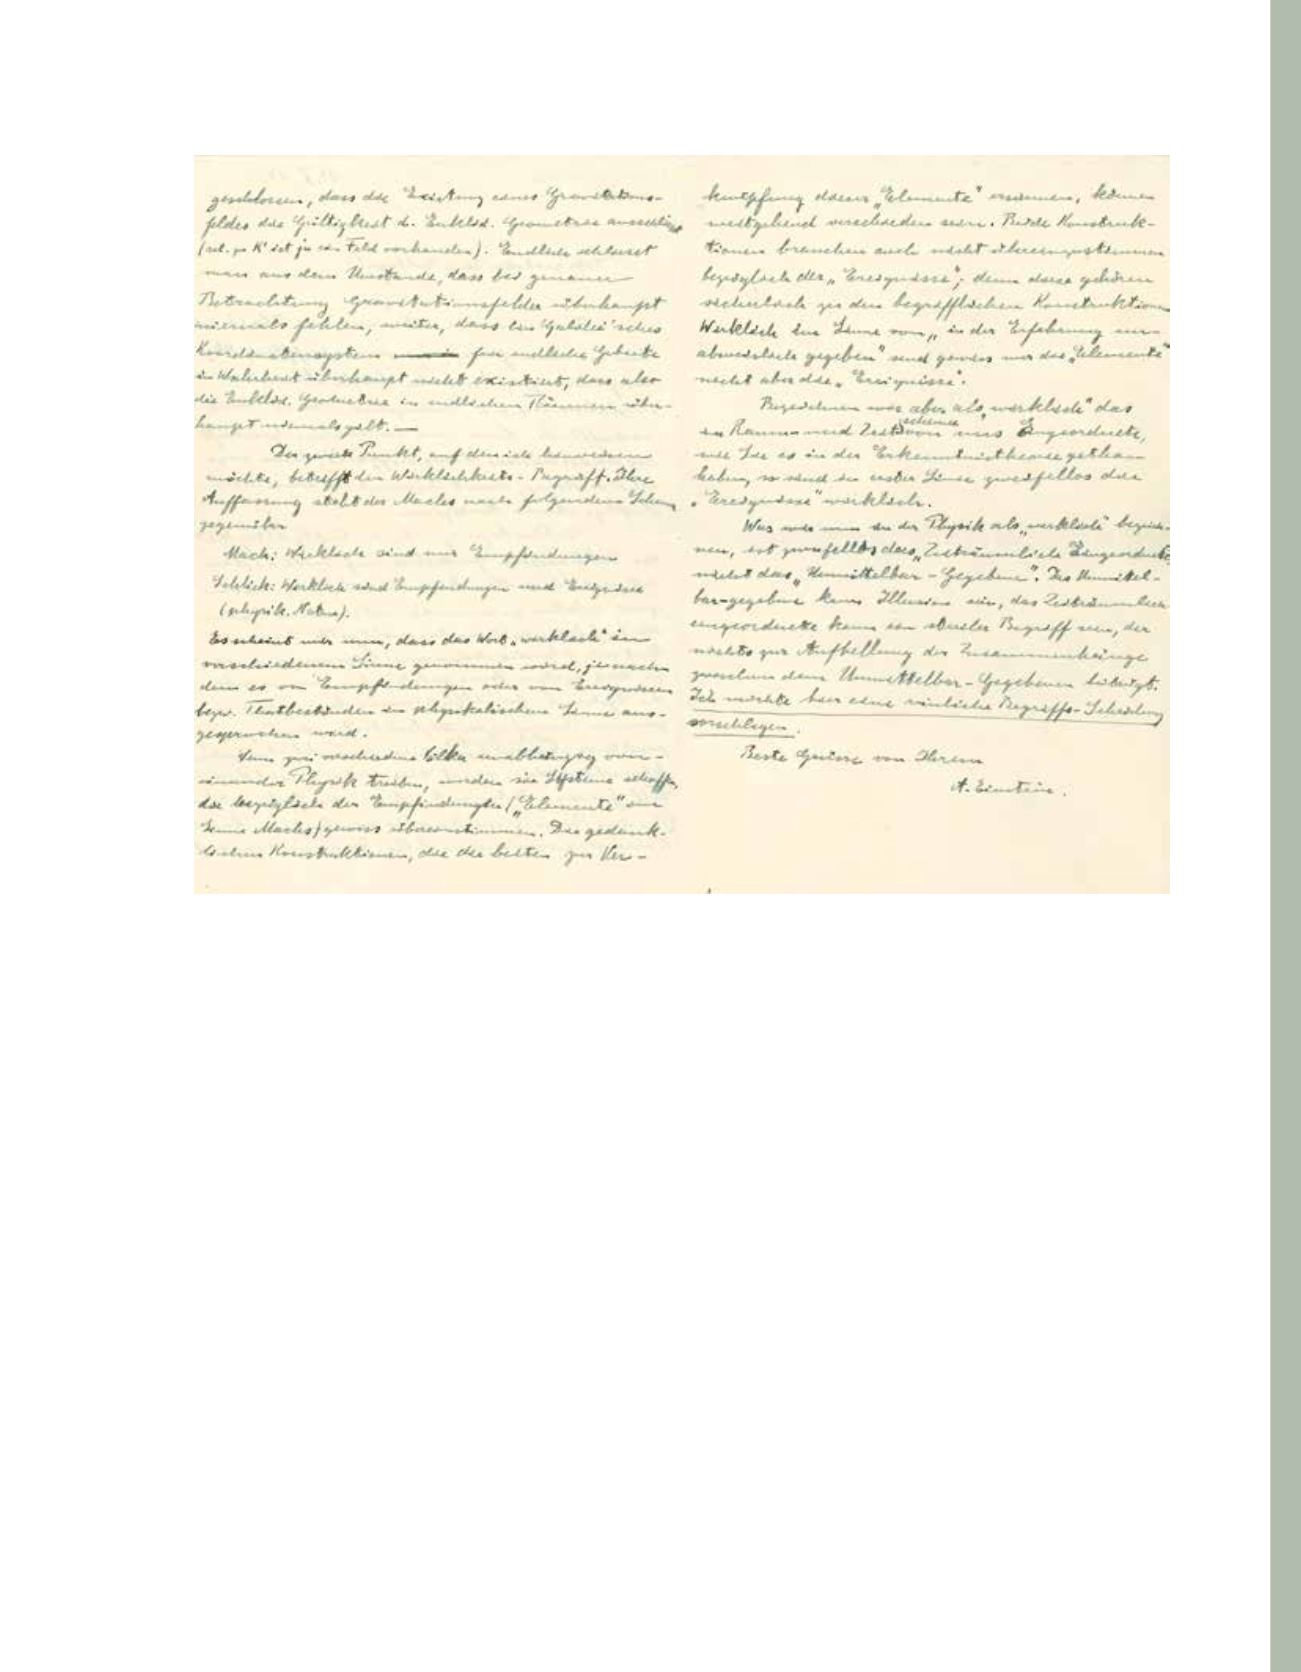 geschlossen, dass die Existenz eines Gravitations-
feldes die Gültigkeit d. Euklid. Geometrie ausschliesst
(rel. zu K' ist ja ein Feld vorhanden). Endlich schliesst
man aus dem Umstande, dass bei genauer
Betrachtung Gravitationsfelder überhaupt
niemals fehlen, weiter, dass ein Galilei'sches
Koordinatensystem für endliche Gebiete
in Wahrheit überhaupt nicht existiert, dass also
die Euklid. Geometrie in endlichen Räumen über-
haupt niemals gilt. —
Der zweite Punkt, auf den ich hinweisen
möchte, betrifft den Wirklichkeits-Begriff. Ihre
Auffassung steht der Machs nach folgendem Schema
gegenüber
Mach: Wirklich sind nur Empfindungen
Schlick: Wirklich sind Empfindungen und Ereignisse
(physik. Natur).
Es scheint mir nun, dass das Wort „wirklich" in
verschiedenem Sinne genommen wird, je nach
dem es von Empfindungen oder von Ereignissen
bezw. Thatbeständen in physikalischem Sinne aus-
gesprochen wird.
Wenn zwei verschiedene Völker unabhängig von-
einander Physik treiben, werden sie Systeme schaffen,
die bezüglich der Empfindungen („Elemente" im
Sinne Machs) gewiss übereinstimmen. Die gedank-
lichen Konstruktionen, die die beiden zur Ver-
knüpfung dieser „Elemente" ersinnen, können
weitgehend verschieden sein. Beide Konstruk-
tionen brauchen auch nicht übereinzustimmen
bezüglich der „Ereignisse"; denn diese gehören
sicherlich zu den begrifflichen Konstruktionen
Wirklich im Sinne von „in der Erfahrung un-
abweislich gegeben" sind gewiss nur die „Elemente"
nicht aber die „Ereignisse".
Bezeichnen wir aber als „wirklich" das
in Raum- und Zeitschema von uns Eingeordnete,
wie Sie es in der Erkenntnistheorie gethan
haben, so sind in erster Linie zweifellos die
„Ereignisse" wirklich.
Was wir nun in der Physik als „wirklich" bezeich-
nen, ist zweifellos das „Zeiträumlich Eingeordnete,
nicht das „Unmittelbar-Gegebene". Das Unmittel-
bar-gegebene kann Illusion sein, das Zeiträumlich
eingeordnete kann ein steriler Begriff sein, der
nichts zur Aufhellung der Zusammenhänge
zwischen dem Unmittelbar-Gegebenen beiträgt.
Ich möchte hier eine reinliche Begriffs-Scheidung
vorschlagen.
Beste Grüsse von Ihrem
A. Einstein.